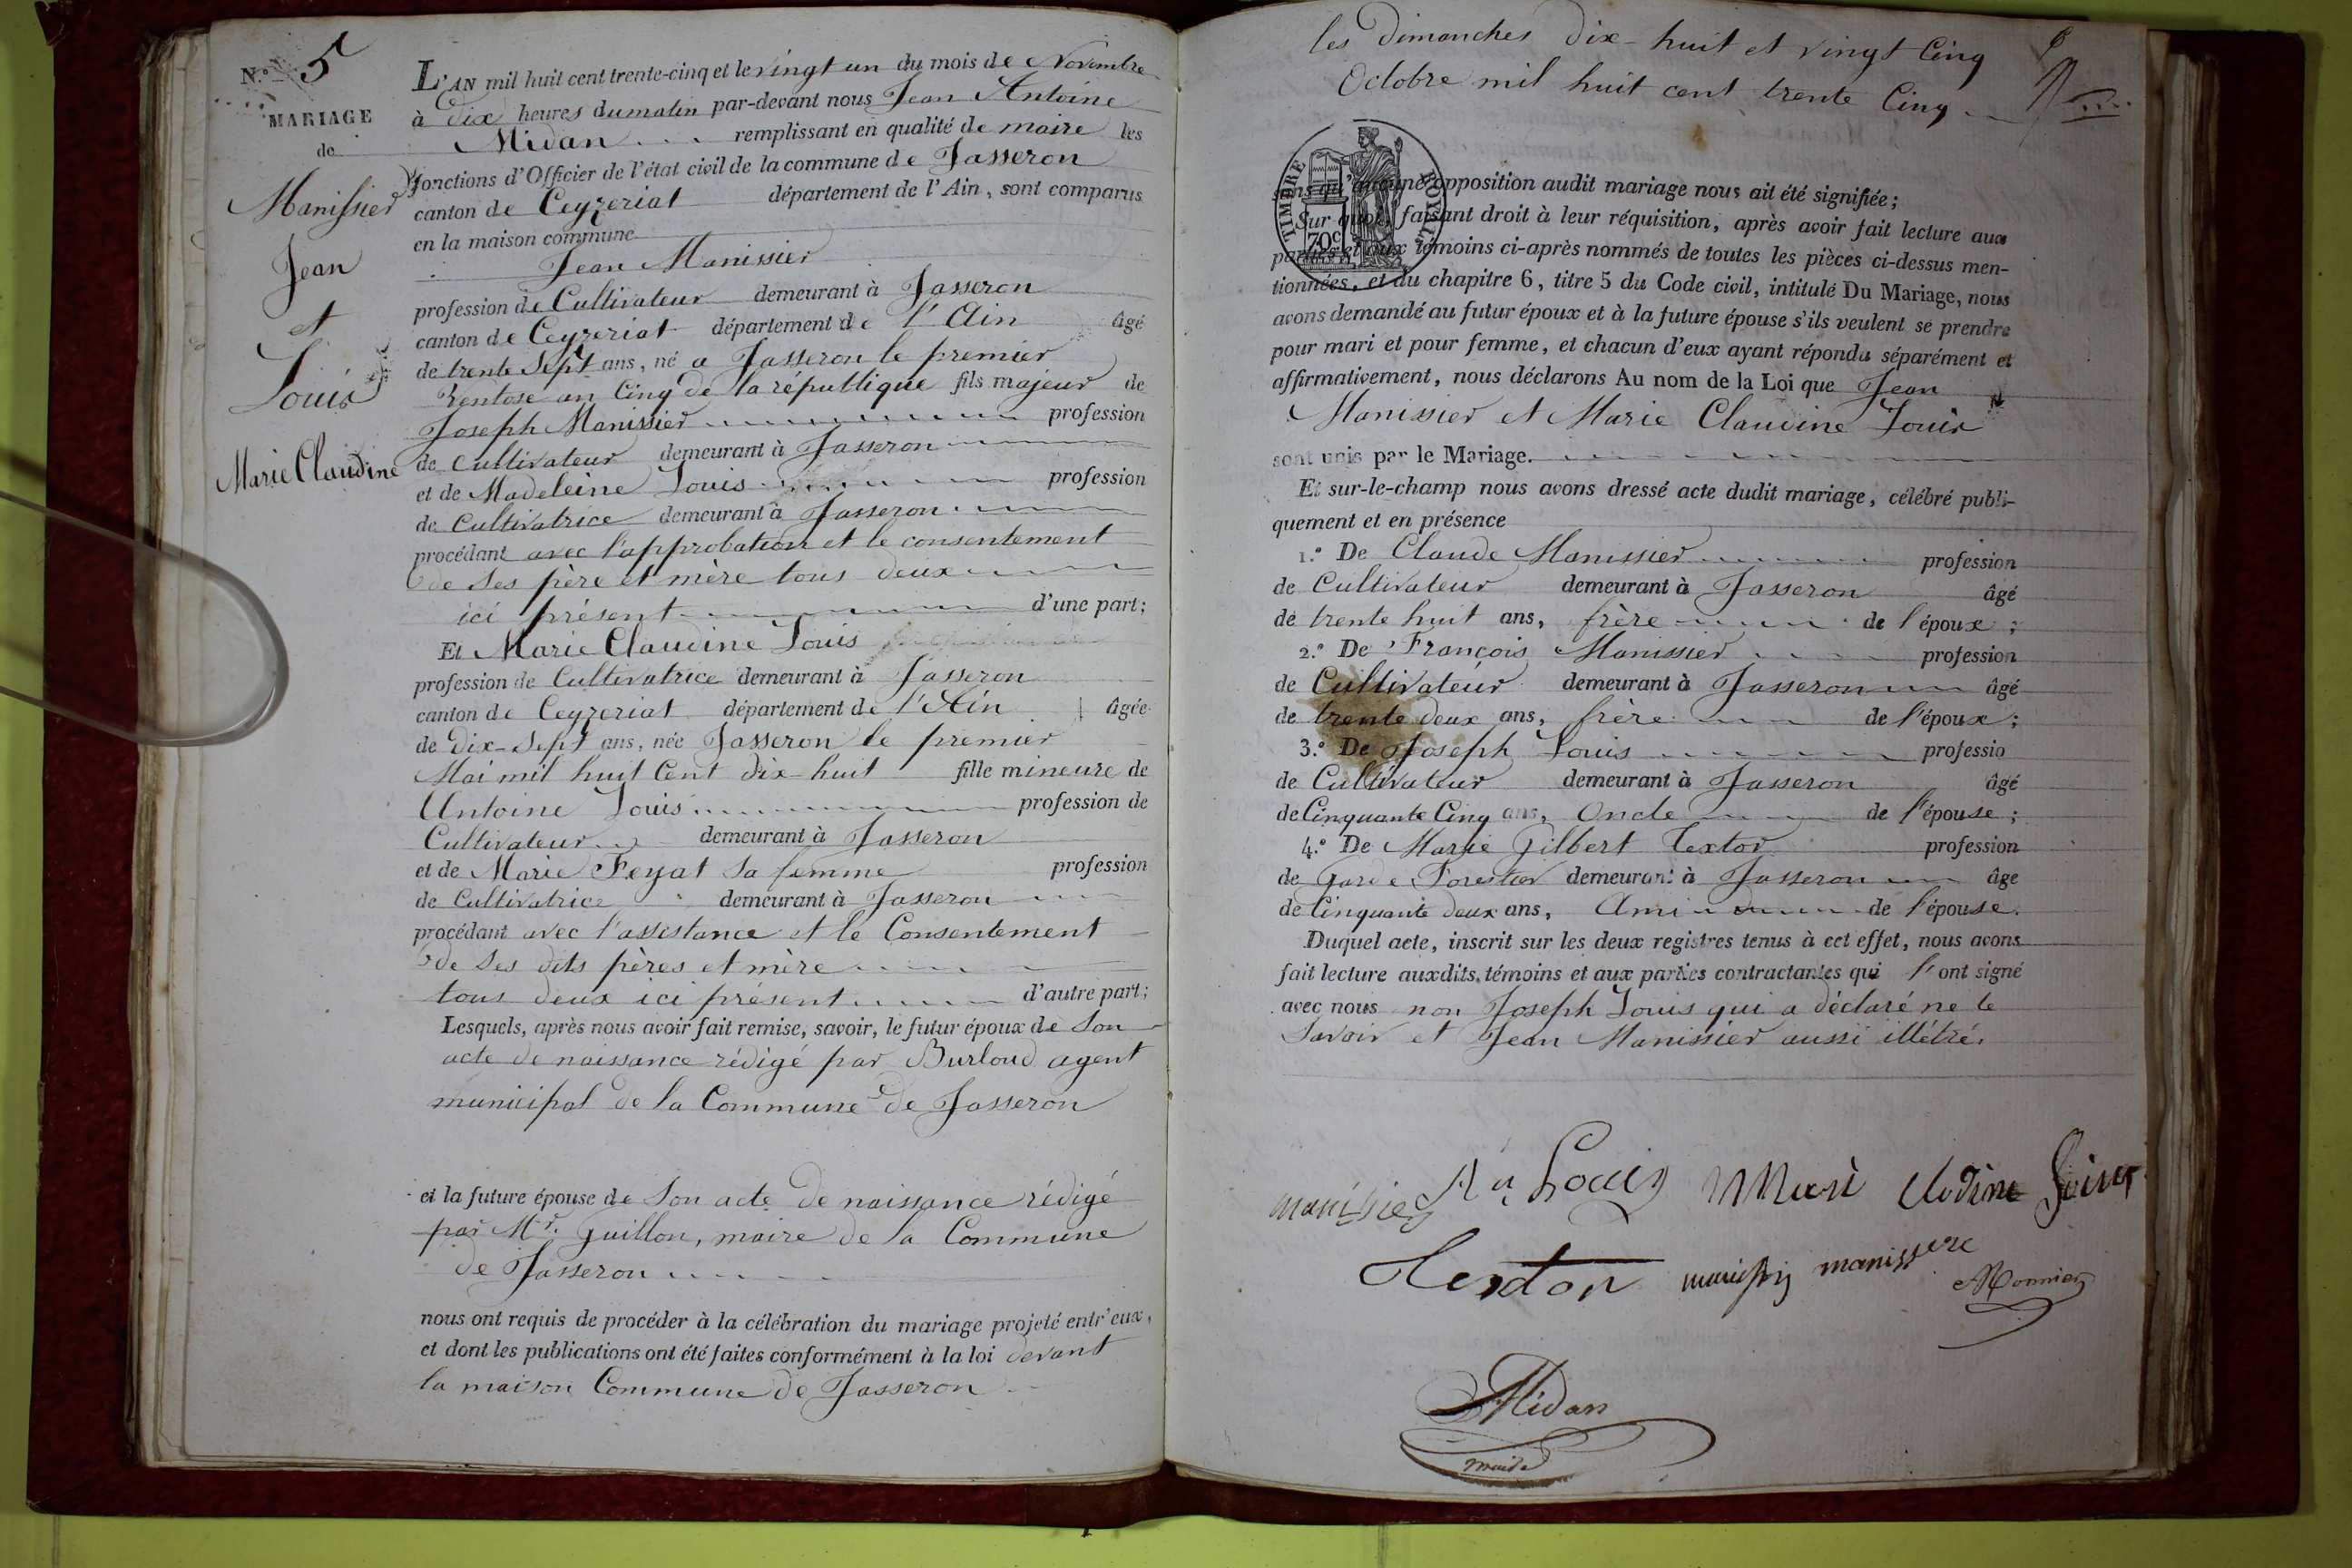 N.º 5
MARIAGE
de
Manissier
Jean
et
Louis
Marie Claudine
L'AN mil huit cent trente-cinq et le vingt un du mois de Novembre
à Dix heures du matin par-devant nous Jean Antoine
Midan remplissant en qualité de maire les
fonctions d'Officier de l'état civil de la commune de Jasseron
canton de Ceyzeriat département de l'Ain, sont comparus
en la maison commune
Jean Manissier
profession de Cultivateur demeurant à Jasseron
canton de Ceyzeriat département de l'Ain âgé
de trente Sept ans, né a Jasseron le premier
Ventose an Cinq de la république fils majeur de
Joseph Manissier profession
de Cultivateur demeurant à Jasseron
et de Madeleine Louis profession
de Cultivatrice demeurant à Jasseron
procédant avec l'approbation et le consentement
de Ses père et mère tous deux
ici présent d'une part;
Et Marie Claudine Louis
profession de Cultivatrice demeurant à Jasseron
canton de Ceyzeriat département de l'Ain âgée
de Dix-Sept ans, née Jasseron le premier
Mai mil huit Cent dix-huit fille mineure de
Antoine Louis profession de
Cultivateur demeurant à Jasseron
et de Marie Feyat Sa femme profession
de Cultivatrice demeurant à Jasseron
procédant avec l'assistance et le Consentement
de Ses dits pères et mère
tous deux ici présent d'autre part;
Lesquels, après nous avoir fait remise, savoir, le futur époux de Son
acte de naissance rédigé par Burloud agent
municipal de la Commune de Jasseron
et la future épouse de Son acte De naissance rédigé
par Mr. Guillon, maire de la Commune
de Jasseron
nous ont requis de procéder à la célébration du mariage projeté entr'eux,
et dont les publications ont été faites conformément à la loi devant
la maison Commune de Jasseron
les Dimanches Dix-huit et vingt Cinq
Octobre mil huit cent trente Cinq
TIMBRE ROYAL
70c
sans qu'aucune opposition audit mariage nous ait été signifiée;
Sur quoi, faisant droit à leur réquisition, après avoir fait lecture aux
parties et aux témoins ci-après nommés de toutes les pièces ci-dessus men-
tionnées, et du chapitre 6, titre 5 du Code civil, intitulé Du Mariage, nous
avons demandé au futur époux et à la future épouse s'ils veulent se prendre
pour mari et pour femme, et chacun d'eux ayant répondu séparément et
affirmativement, nous déclarons Au nom de la Loi que Jean
Manissier et Marie Claudine Louis
sont unis par le Mariage.
Et sur-le-champ nous avons dressé acte dudit mariage, célébré publi-
quement et en présence
1.º De Claude Manissier profession
de Cultivateur demeurant à Jasseron âgé
de trente huit ans, frère de l'époux;
2.º De François Manissier profession
de Cultivateur demeurant à Jasseron âgé
de trente deux ans, frère de l'époux;
3.º De Joseph Louis professio
de Cultivateur demeurant à Jasseron âgé
de Cinquante Cinq ans, Oncle de l'épouse;
4.º De Marie Gilbert Textor profession
de Garde Forestier demeurant à Jasseron âge
de Cinquante deux ans, Ami de l'épouse.
Duquel acte, inscrit sur les deux registres tenus à cet effet, nous avons
fait lecture auxdits témoins et aux parties contractantes qui l'ont signé
avec nous non Joseph Louis qui a déclaré ne le
Savoir et Jean Manissier aussi illétré.
manissier Louis Mari Clodine Louis
Textor manissier Monnier
Midan
maire